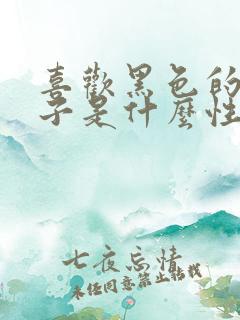 喜歡黑色的
子是什麼性
七夜忘情
未任同意禁止轉載